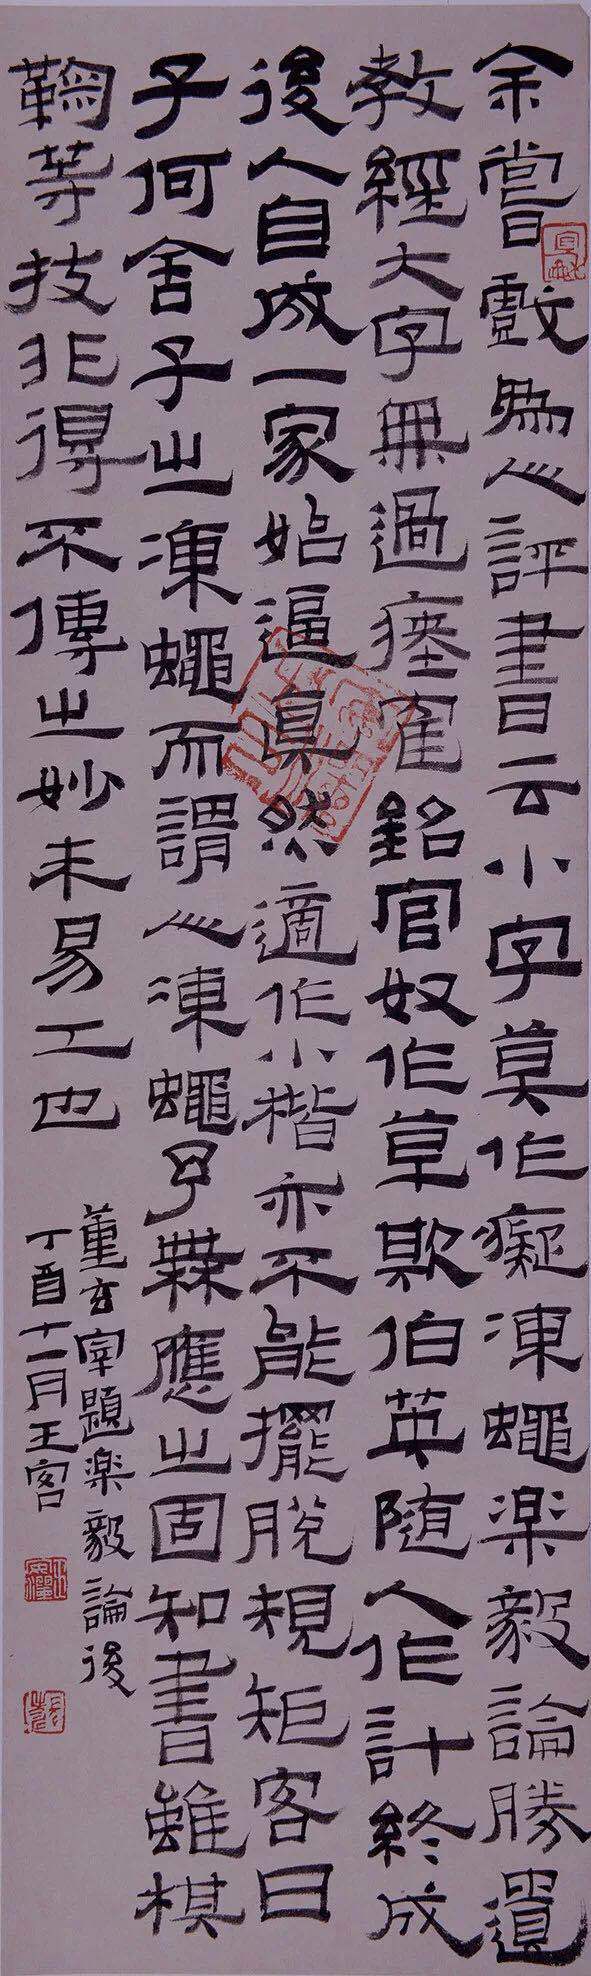 余嘗戲為人評書曰云小字莫作癡凍蠅楽毅論勝遺
教經大字無過瘞寉銘官奴作草欺伯英随人作計終成
後人自成一家始逼真然適作小楷亦不能擺脱規矩客曰
子何舍子之凍蠅而謂人凍蠅予無應之固知書雖棋
鞠等技非得不傳之妙未易工也
董玄宰題楽毅論後
丁酉十一月王客